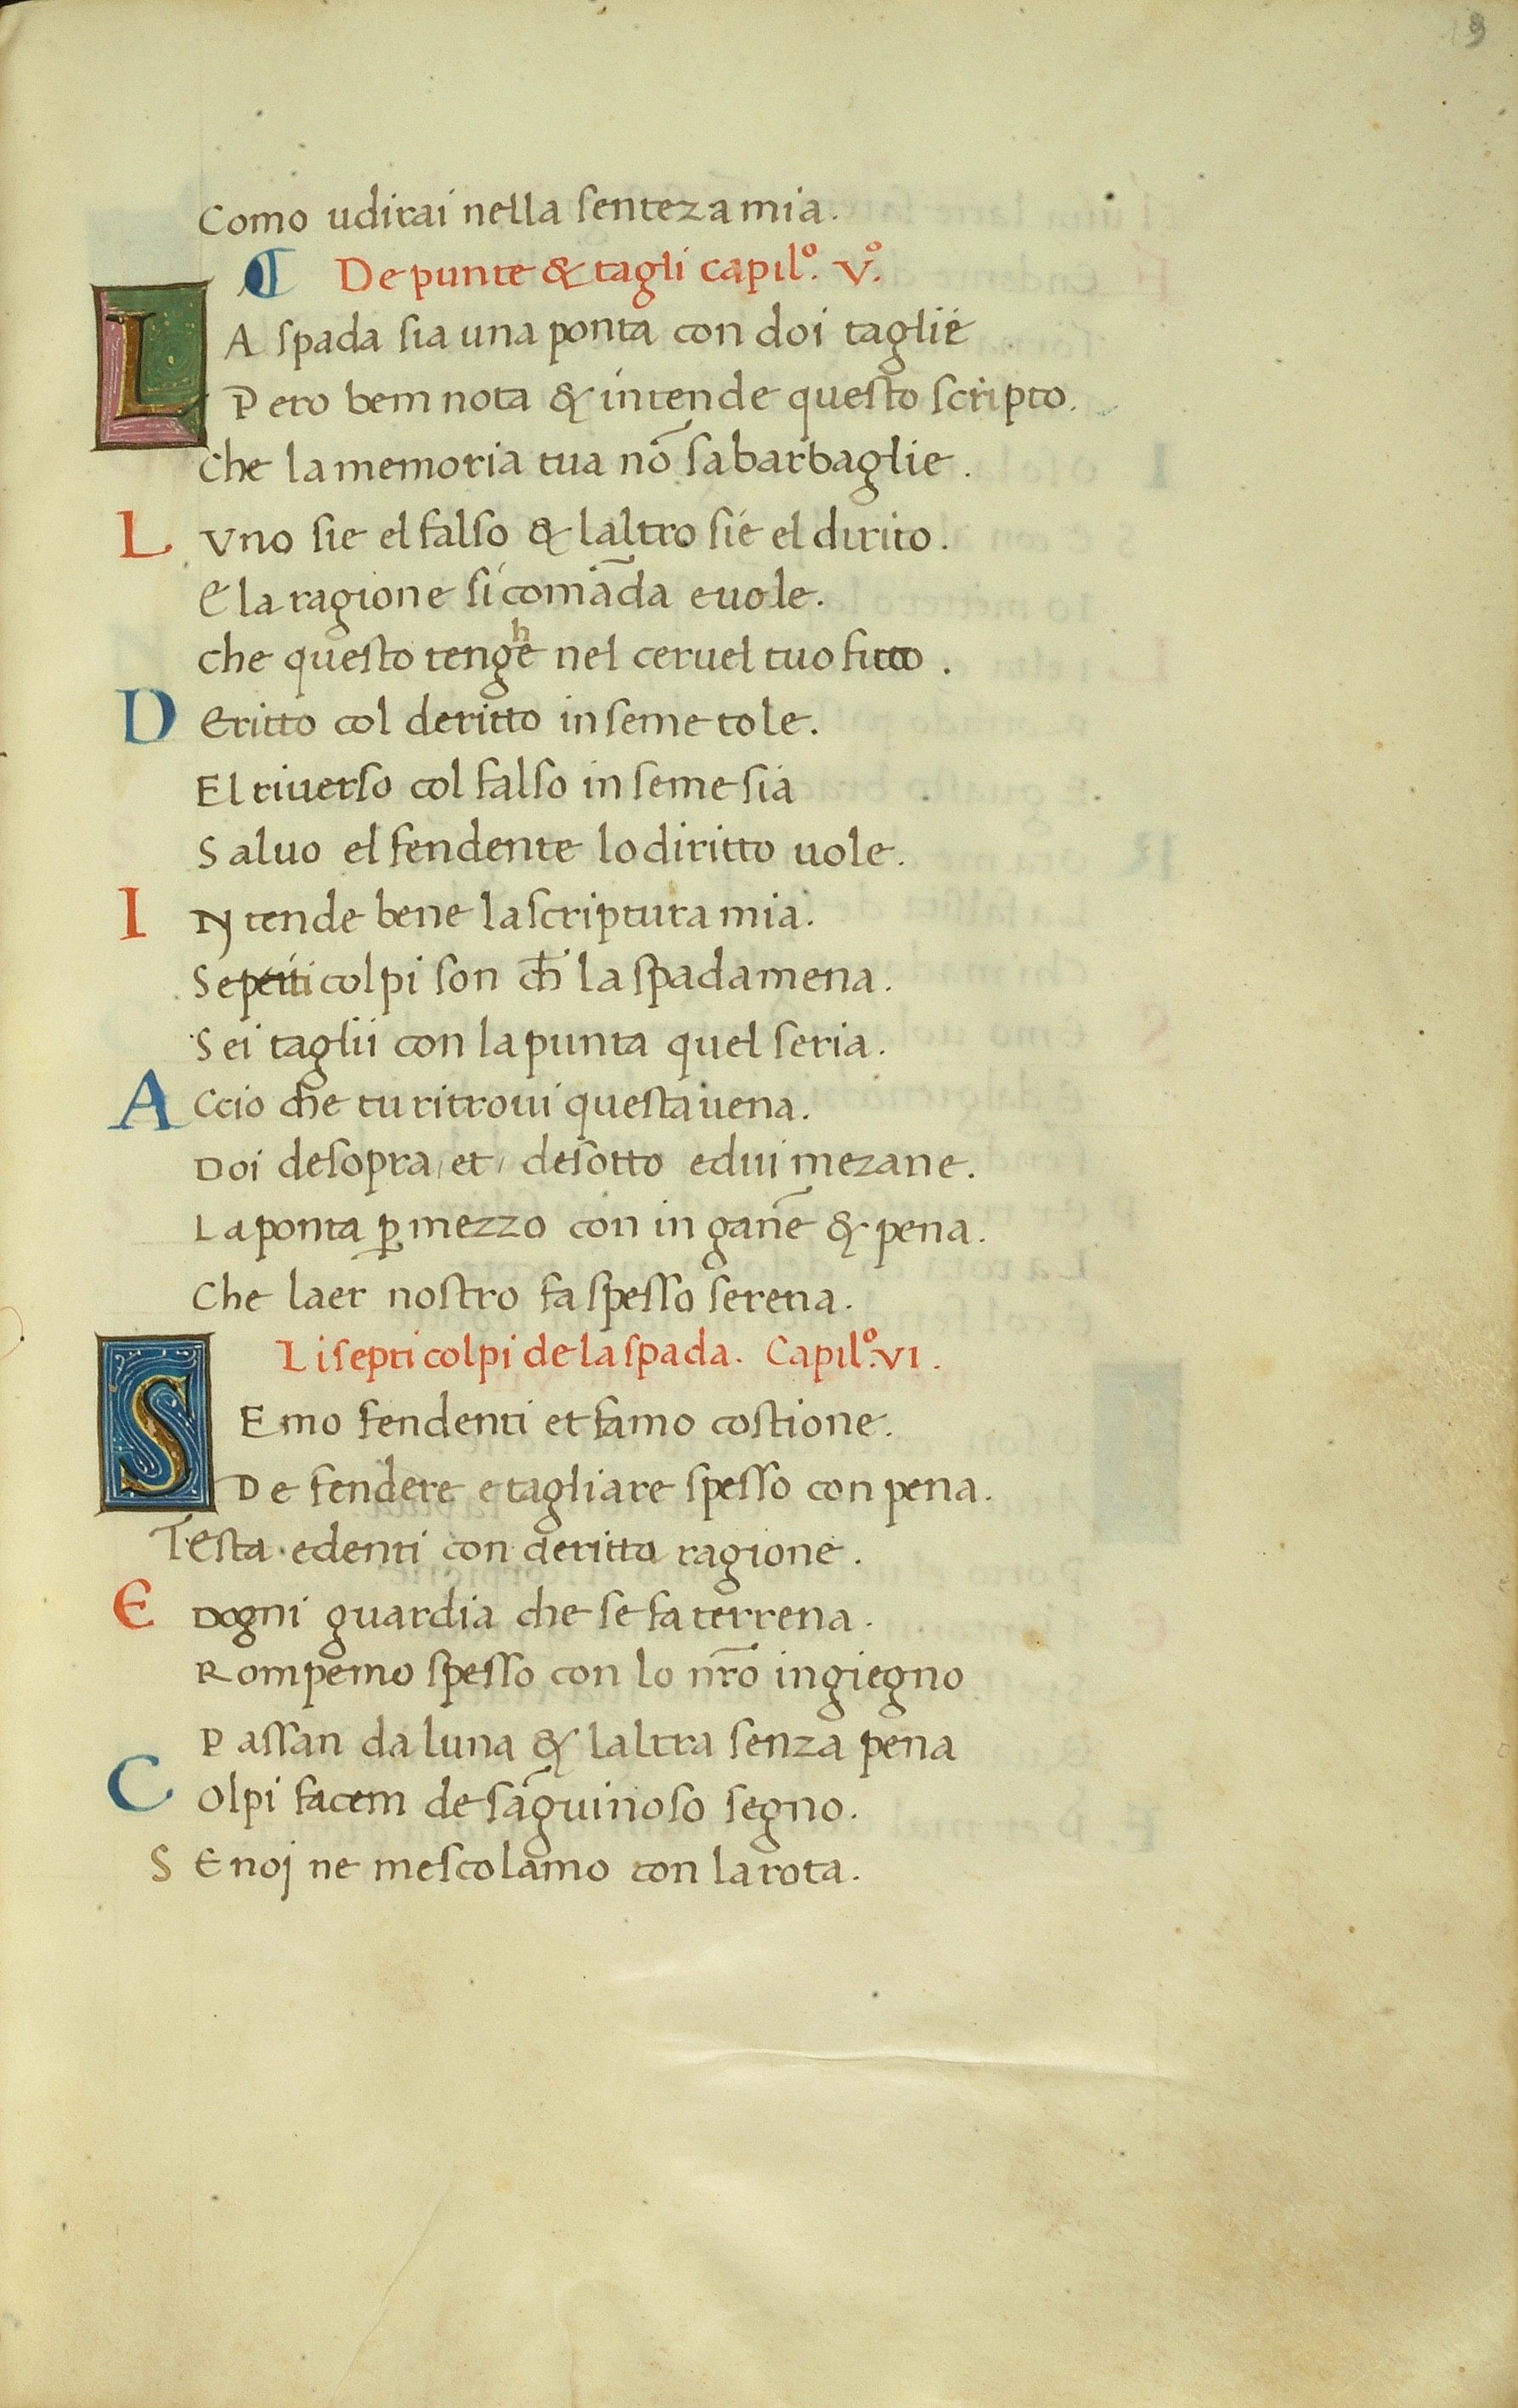 9
Como udirai nella senteza mia.
¶ De punte & tagli capilº. Vº.
LA spada sia una ponta con doi taglie
Pero bem nota & intende questo scripto.
Che la memoria tua nō sabarbaglie.
L Vno sie el falso & laltro sie el dirito.
E la ragione si comāda e uole.
che questo tenghe nel ceruel tuo fitto.
D Eritto col deritto in seme tole.
El riuerso col falso in seme sia
Saluo el fendente lo diritto uole.
I Ntende bene la scriptura mia.
Septi colpi son ch̄ la spada mena.
Sei taglii con la punta quel seria.
A Ccio che tu ritroui questa uena.
Doi de sopra et de sotto e dui mezane.
La ponta ꝑ mezzo con in gan̄e & pena.
Che laer nostro fa spesso serena.
Li septi colpi de la spada. Capilº. VI.
SEmo fendenti et famo costione.
De fendere e tagliare spesso con pena.
Testa e denti con deritta ragione.
E Dogni guardia che se fa terrena.
Rompemo spesso con lo nr̄o ingiegno
Passan da luna & laltra senza pena
C Olpi facem de sāguinoso segno.
S E noj ne mescolamo con la rota.